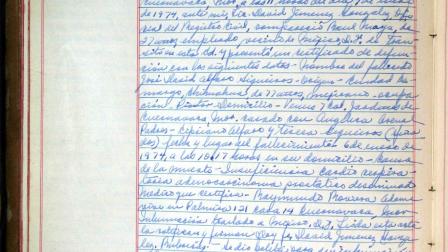 Cuernavaca, Mor., a las 11 horas del dia 7 de enero
de 1974, ante mi, Lic. David Jimenez Gonzalez, Ofi-
cial del Registro Civil, comparecio Raul Maza, de
37 años empleado, vecino de Mejico, D.F. de Tran-
sito en esta Cd. y presentó un certificado de defun-
ción con los siguientes datos - Nombre del fallecido
José David Alfaro Siqueiros - Origen - Ciudad Ca-
margo, Chihuahua de 77 años, mejicano - ocupa-
ción Pintor Domicilio - Venus 7 Col. Jardines de
Cuernavaca, Mor. casado con Angelica Arenal
Padres - Cipriano Alfaro y Teresa Siqueiros (fina-
dos) fecha y lugar del fallecimiento 6 de enero de
1974, a las 10:17 horas en su domicilio - Causa
de la muerte - Insuficiencia cardio respira-
toria adenocarcinoma prostatico diseminado
Medico que certifico - Raymundo
vive en Palmira casa 14 Cuernavaca Mor
Inhumación traslado a Mejico, D.F. Leida esta acta
la ratifica y firman Doy fe David Jimenez Gonza-
lez, Rubricas